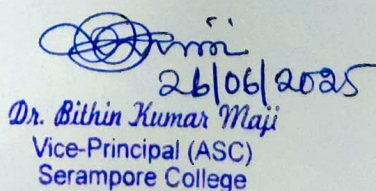 26/06/2025
Dr. Bithin Kumar Maji
Vice-Principal (ASC)
Serampore College